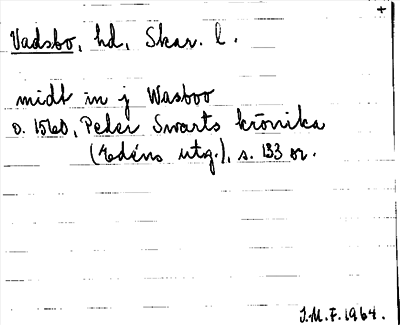 +
Vadsbo, hd, Skar. l.
midt in j Wasboo
o. 1560, Peder Swarts krönika
(Edéns utg.), s. 133 or.
J.M.F. 1964.